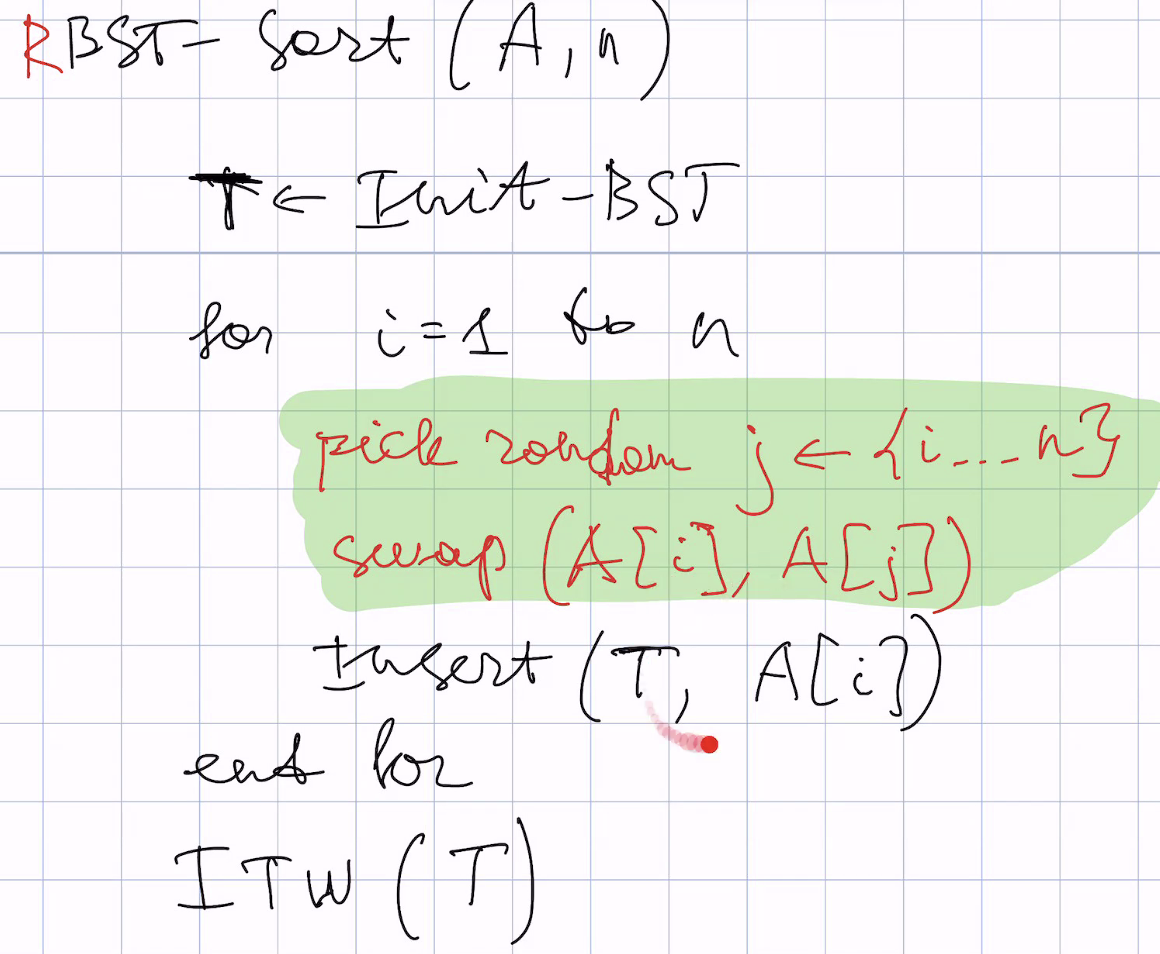 RBST-Sort (A, n)
T ← Init-BST
for i=1 to n
pick random j ← {i...n}
swap (A[i], A[j])
Insert (T, A[i])
end for
ITW (T)